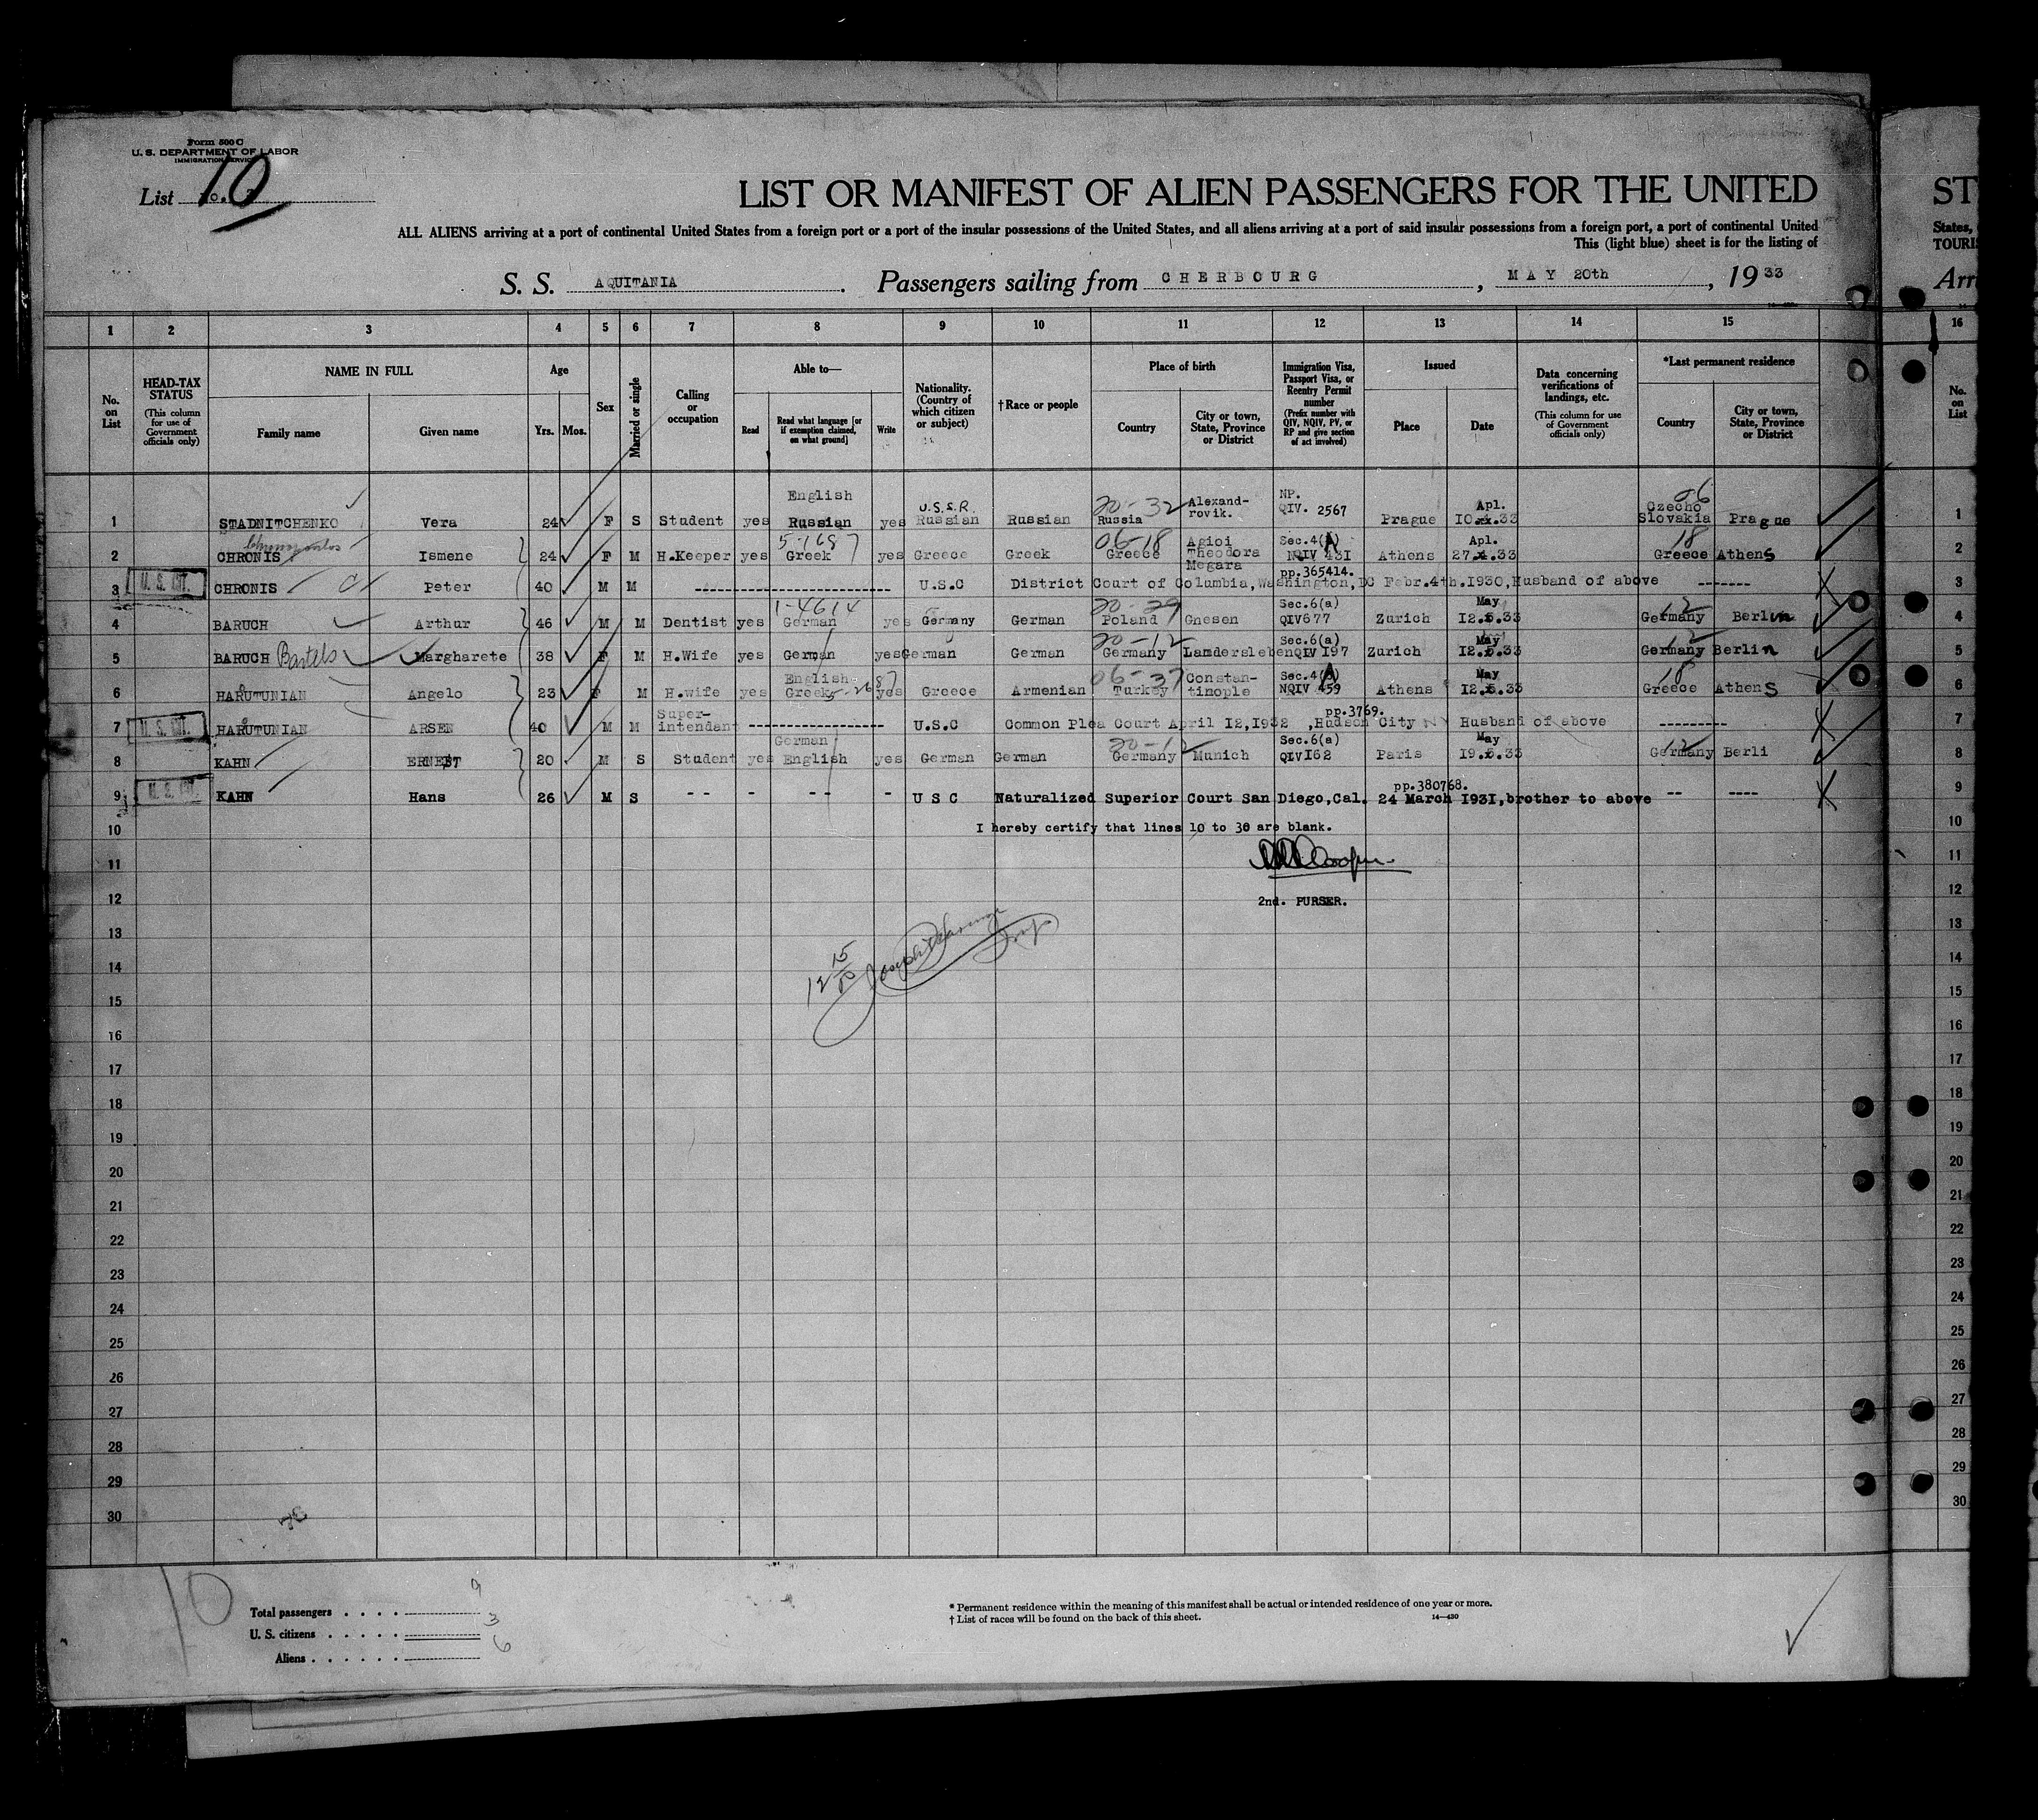 Form 500 C
U. S. DEPARTMENT OF LABOR
IMMIGRATION SERVICE
List No. 10
LIST OR MANIFEST OF ALIEN PASSENGERS FOR THE UNITED
ST
ALL ALIENS arriving at a port of continental United States from a foreign port or a port of the insular possessions of the United States, and all aliens arriving at a port of said insular possessions from a foreign port, a port of continental United
States,
This (light blue) sheet is for the listing of
TOURI
S. S. AQUITANIA. Passengers sailing from CHERBOURG, MAY 20th, 19 33
Arri
1 2 3 4 5 6 7 8 9 10 11 12 13 14 15 16
No. on List
HEAD-TAX STATUS
(This column for use of Government officials only)
NAME IN FULL
Family name
Given name
Age
Yrs. Mos.
Sex
Married or single
Calling or occupation
Able to—
Read
Read what language [or if exemption claimed, on what ground]
Write
Nationality. (Country of which citizen or subject)
†Race or people
Place of birth
Country
City or town, State, Province or District
Immigration Visa, Passport Visa, or Reentry Permit number
(Prefix number with QIV, NQIV, PV, or RP and give section of act involved)
Issued
Place
Date
Data concerning verifications of landings, etc.
(This column for use of Government officials only)
*Last permanent residence
Country
City or town, State, Province or District
No. on List
1 STADNITCHENKO Vera 24 F S Student yes English Russian yes U.S.S.R. Russian Russian 20-32 Russia Alexand-rovik. NP. QIV. 2567 Prague Apl. 10.4.33 06 Czecho Slovakia Prague 1
2 CHRONIS Ismene 24 F M H.Keeper yes 5-1687 Greek yes Greece Greek 06-18 Greece Agioi Theodora Megara Sec.4(A) NQIV 431 Athens Apl. 27.4.33 18 Greece Athens 2
3 U. S. CIT. CHRONIS Peter 40 M M U.S.C pp.365414. District Court of Columbia,Washington,DC Febr.4th.1930,Husband of above 3
4 BARUCH Arthur 46 M M Dentist yes 1-4614 German yes Germany German 20-29 Poland Gnesen Sec.6(a) QIV677 Zurich May 12.5.33 12 Germany Berlin 4
5 BARUCH Bartels Margharete 38 F M H.Wife yes German yes German German 20-12 Germany Landersleben Sec.6(a) QIV 197 Zurich May 12.5.33 12 Germany Berlin 5
6 HARUTUNIAN Angelo 23 F M H.wife yes English Greek 5-2687 yes Greece Armenian 06-37 Turkey Constan-tinople Sec.4(A) NQIV 459 Athens May 12.5.33 18 Greece Athens 6
7 U. S. CIT. HARUTUNIAN ARSEN 40 M M Super-intendant U.S.C pp.3769. Common Plea Court April 12,1932 ,Hudson City NY Husband of above 7
8 KAHN ERNEST 20 M S Student yes German English yes German German 20-12 Germany Munich Sec.6(a) QIV162 Paris May 19.5.33 12 Germany Berli 8
9 U. S. CIT. KAHN Hans 26 M S -- - -- - U S C pp.380768. Naturalized Superior Court San Diego,Cal. 24 March 1931,brother to above -- ---- 9
10 I hereby certify that lines 10 to 30 are blank. 10
11 11
12 2nd. PURSER. 12
13 13
14 14
15 15
16 16
17 17
18 18
19 19
20 20
21 21
22 22
23 23
24 24
25 25
26 26
27 27
28 28
29 29
30 30
10
Total passengers . . . . 9
U. S. citizens . . . . . 3
Aliens . . . . . . 6
* Permanent residence within the meaning of this manifest shall be actual or intended residence of one year or more.
† List of races will be found on the back of this sheet. 14—430